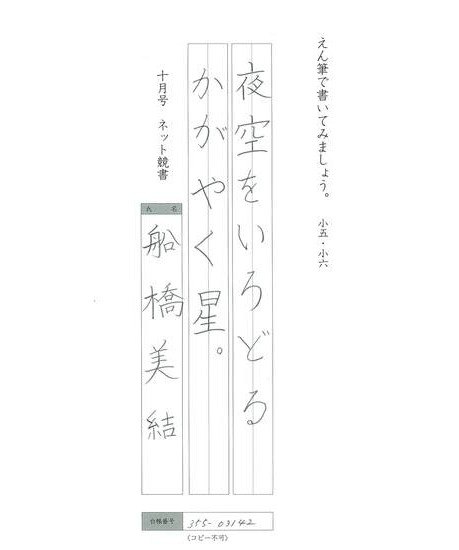 えん筆で書いてみましょう。 小五・小六
夜空をいろどる
かがやく星。
十月号 ネット競書
氏 名
船橋美結
台帳番号 355-03142
(コピー不可)